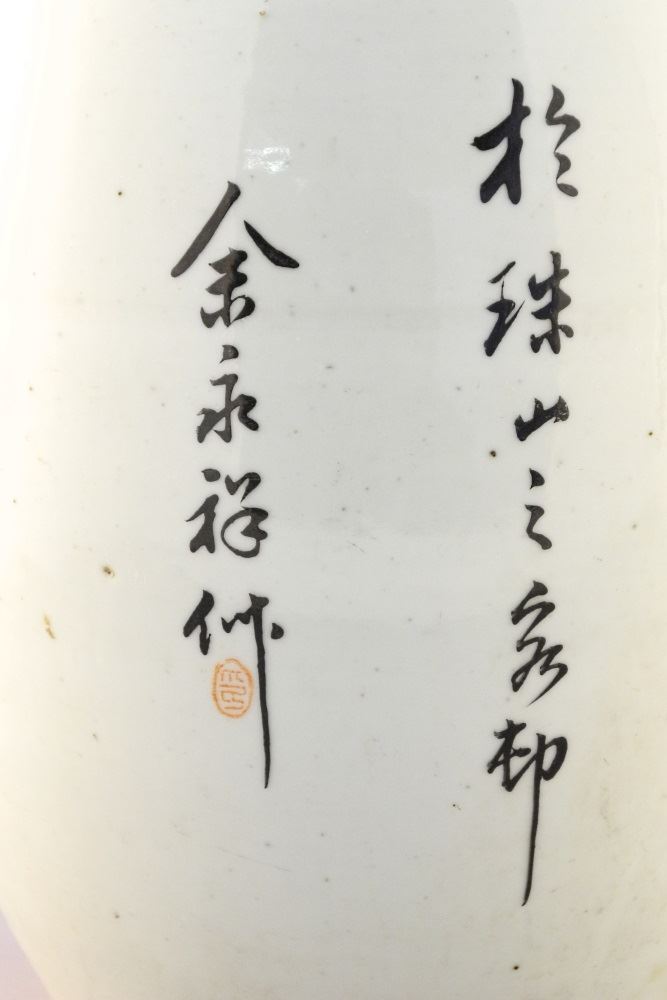 於珠山之客邨
余永祥作
印